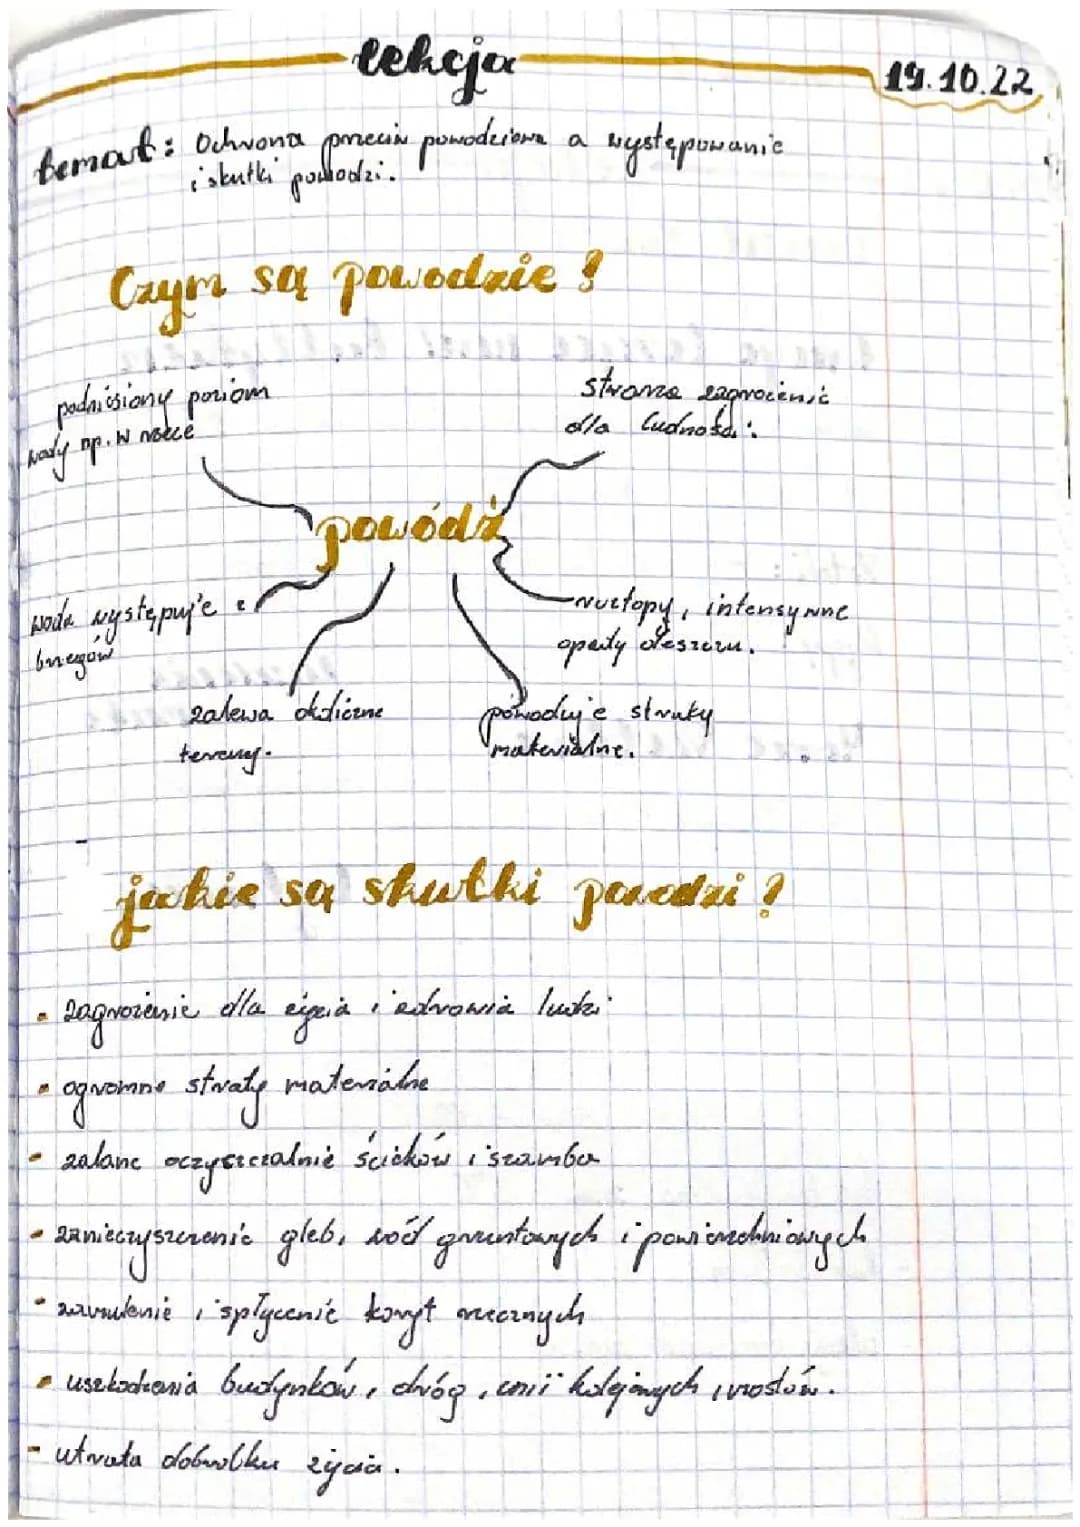 lekcja
19.10.22
temat: Ochrona przeciw powodziowa a występowanie
i skutki powodzi.
Czym są powodzie?
podniesiony poziom
wody np. w rzece
stwarza zagrożenie
dla ludności.
powódź
woda występuje z
brzegów
roztopy, intensywne
opady deszczu.
zalewa okoliczne
tereny.
powoduje straty
materialne.
jakie są skutki powodzi?
- zagrożenie dla życia i zdrowia ludzi
- ogromne straty materialne
- zalane oczyszczalnie ścieków i szamba
- zanieczyszczenie gleb, wód gruntowych i powierzchniowych
- zamulenie i spłycenie koryt rzecznych
- uszkodzenia budynków, dróg, linii kolejowych, mostów.
- utrata dobrobytku życia.